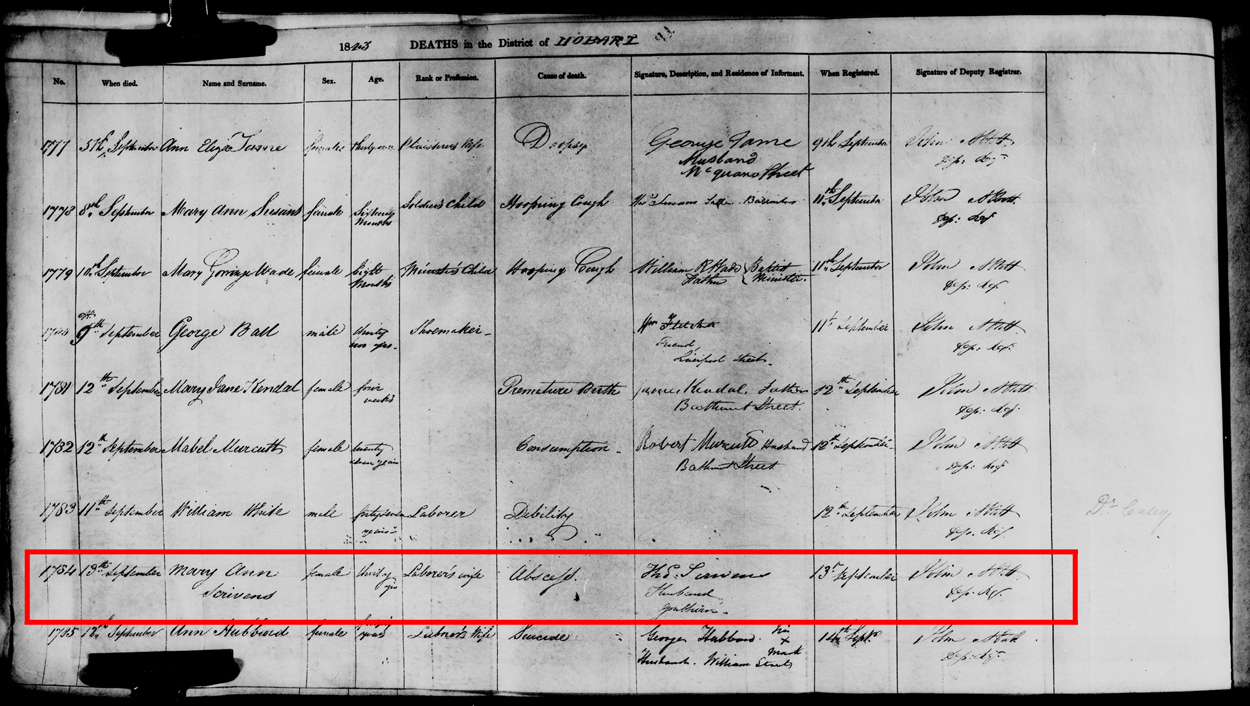 1843 DEATHS in the District of HOBART
No. When died. Name and Surname. Sex. Age. Rank or Profession. Cause of death. Signature, Description, and Residence of Informant. When Registered. Signature of Deputy Registrar.
1777 5th September Ann Eliza female Plaisterers Wife Dropsy George 9th September John
Husband Dep: Reg:
Street
1778 8th September Mary Ann female Sixteen Soldier's Child Hooping Cough 11th September John
Months Dep: Reg:
1779 10th September Mary Gorringe Wade female Eight Minister's Child Hooping Cough William R Wade Baptist 11th September John
Months Father Minister. Dep: Reg:
9th September George Ball male Shoemaker Wm Fletcher 11th September John
Friend Dep: Reg:
Liverpool Street
1781 12th September Mary Jane Kendal female five Premature Birth James Kendal. Father 12th September John
weeks Bathurst Street. Dep: Reg:
1782 12th September Mabel Murcutt female twenty Consumption Robert Murcutt Husband 12th September John
seven years Bathurst Street Dep: Reg:
1783 11th September William White male forty seven Laborer Debility 12th September John
years Dep: Reg:
1784 13th September Mary Ann female Laborer's wife Abscess. Thos. Scrivens 13th September John
Scrivens Husband Dep: Reg:
1785 12th September Ann Hubbard female Laborer's Wife Suicide George Hubbard his 14th Septr. John
years Husband. William Street X mark Dep: Reg: